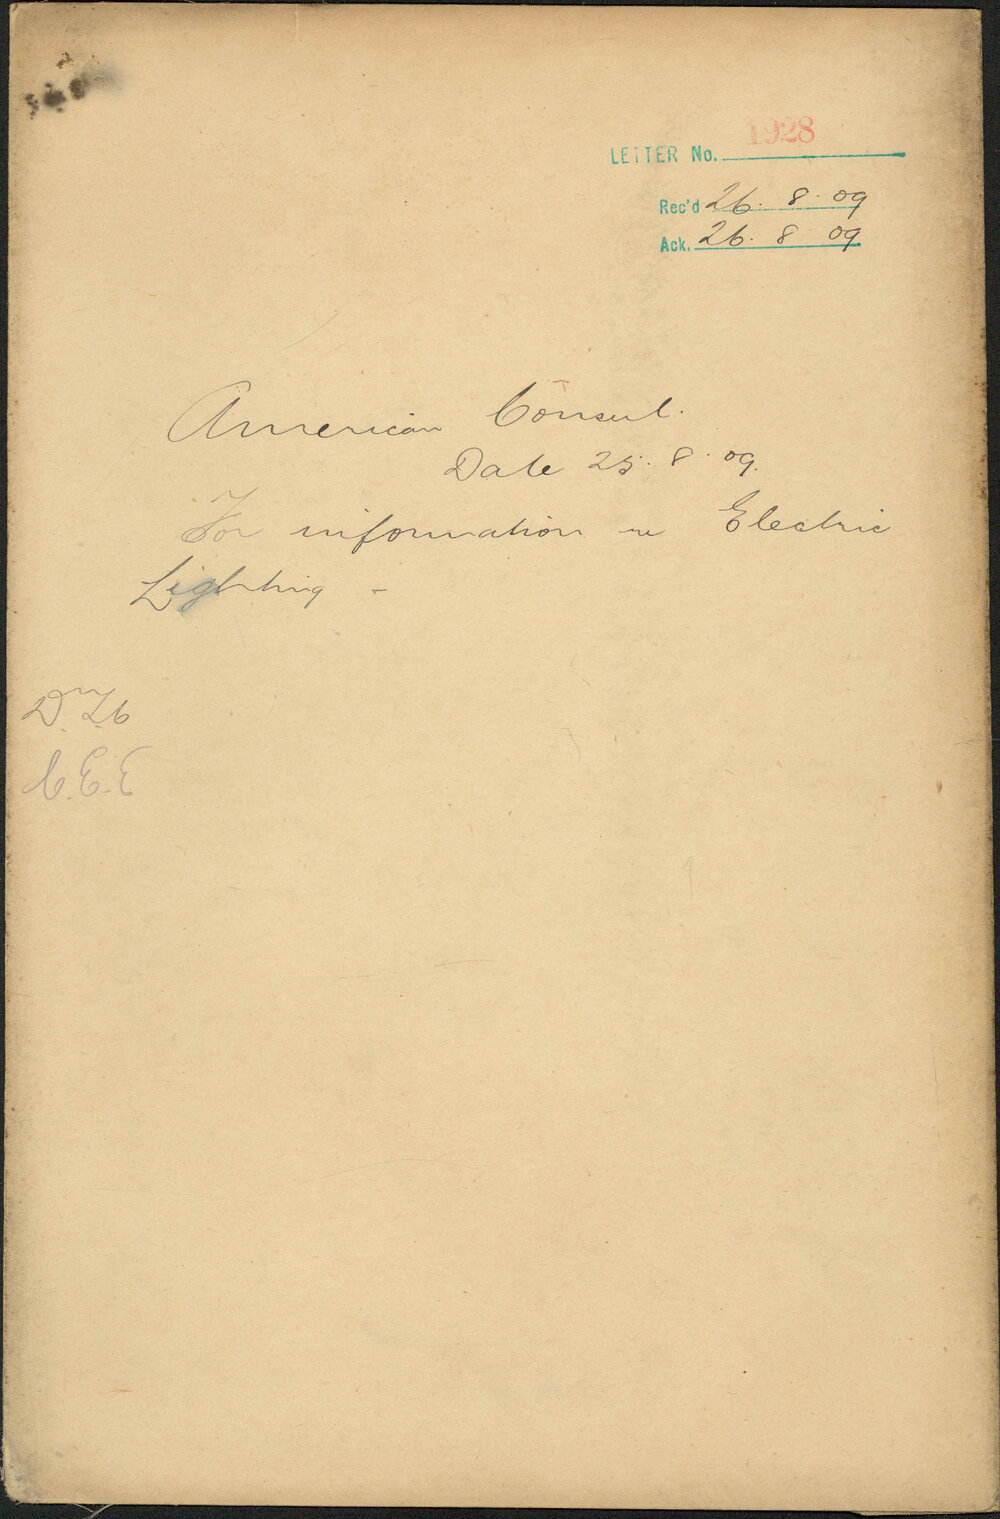 LETTER No. 1928
Rec'd 26. 8. 09
Ack. 26. 8 09
American Consul.
Date 25. 8. 09.
For information re Electric
Lighting -
C.E.E